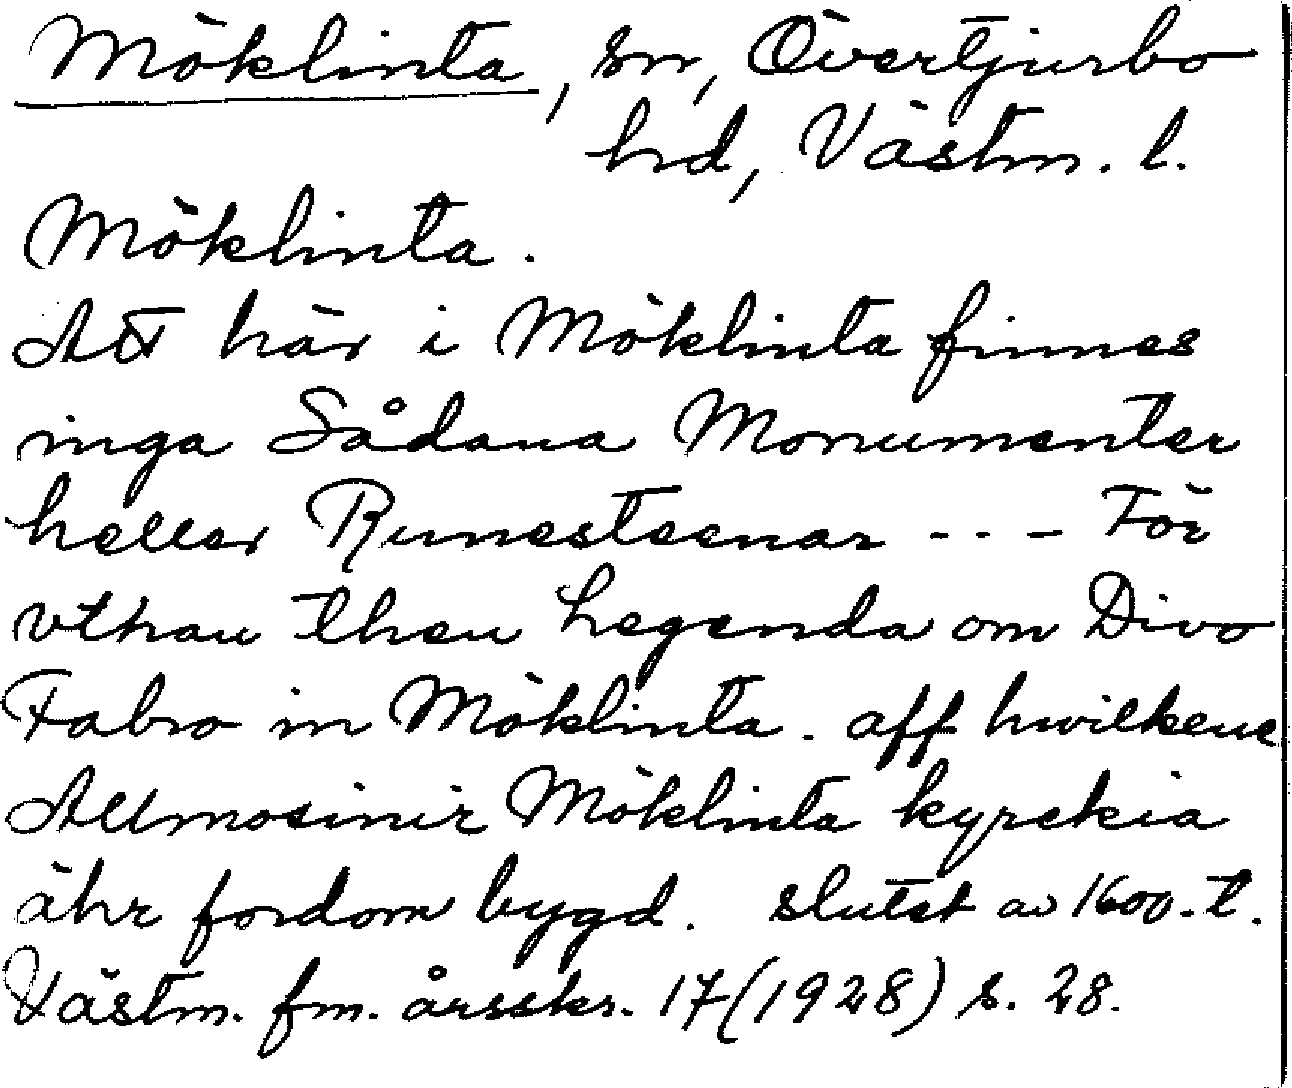 Möklinta, sn, Övertjurbo
hd, Västm. l.
Möklinta.
Att här i Möklinta finnes
inga Sådana Monumenter
heller Runesteenar - - - För
vthan then Legenda om Divo
Fabro in Möklinta. aff hwilkens
Allmosinir Möklinta kyrckia
ähr fordom bygd. slutet av 1600-t.
Västm. fm. årsskr. 17 (1928) s. 28.